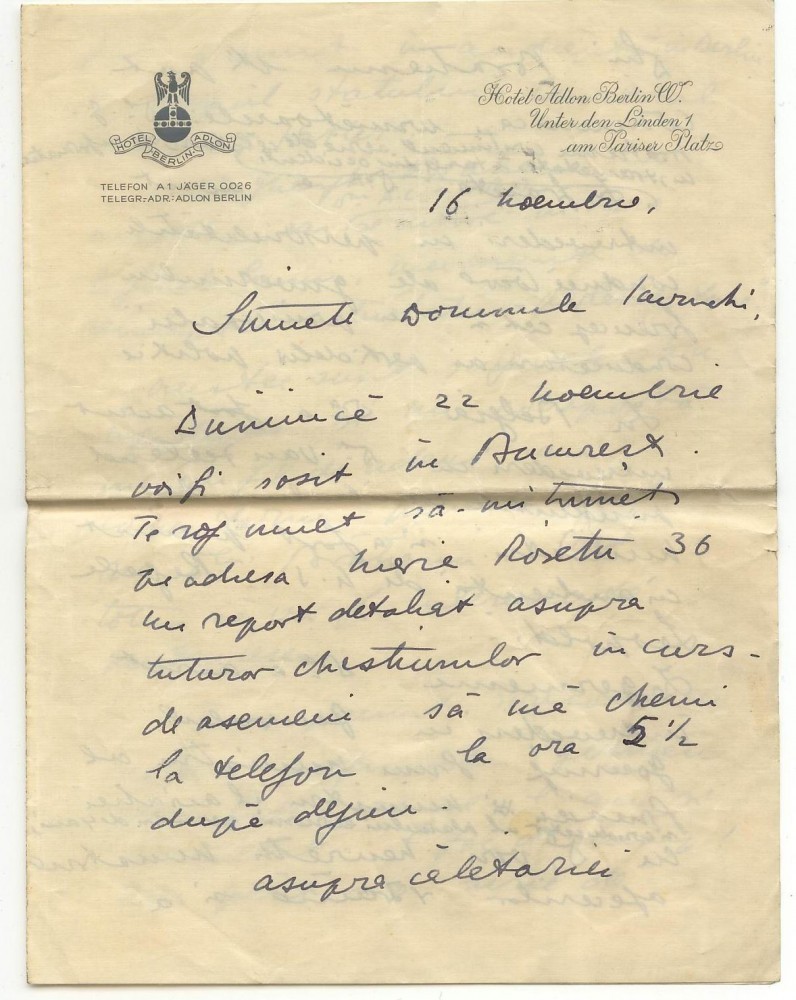 HOTEL ADLON
BERLIN
TELEFON A 1 JÄGER 0026
TELEGR.-ADR.: ADLON BERLIN
Hotel Adlon. Berlin W.
Unter den Linden 1
am Pariser Platz
16 Noembrie,
Stimate Domnule
Duminică 22 Noembrie
voi fi sosit în Bucureșt.
Te rog mult să-mi trimeți
pe adresa Maria Rosetti 36
un raport detaliat asupra
tuturor chestiunilor în curs -
de asemeni să mă chemi
la telefon la ora 5 1/2
după dejun.
asupra călătoriei